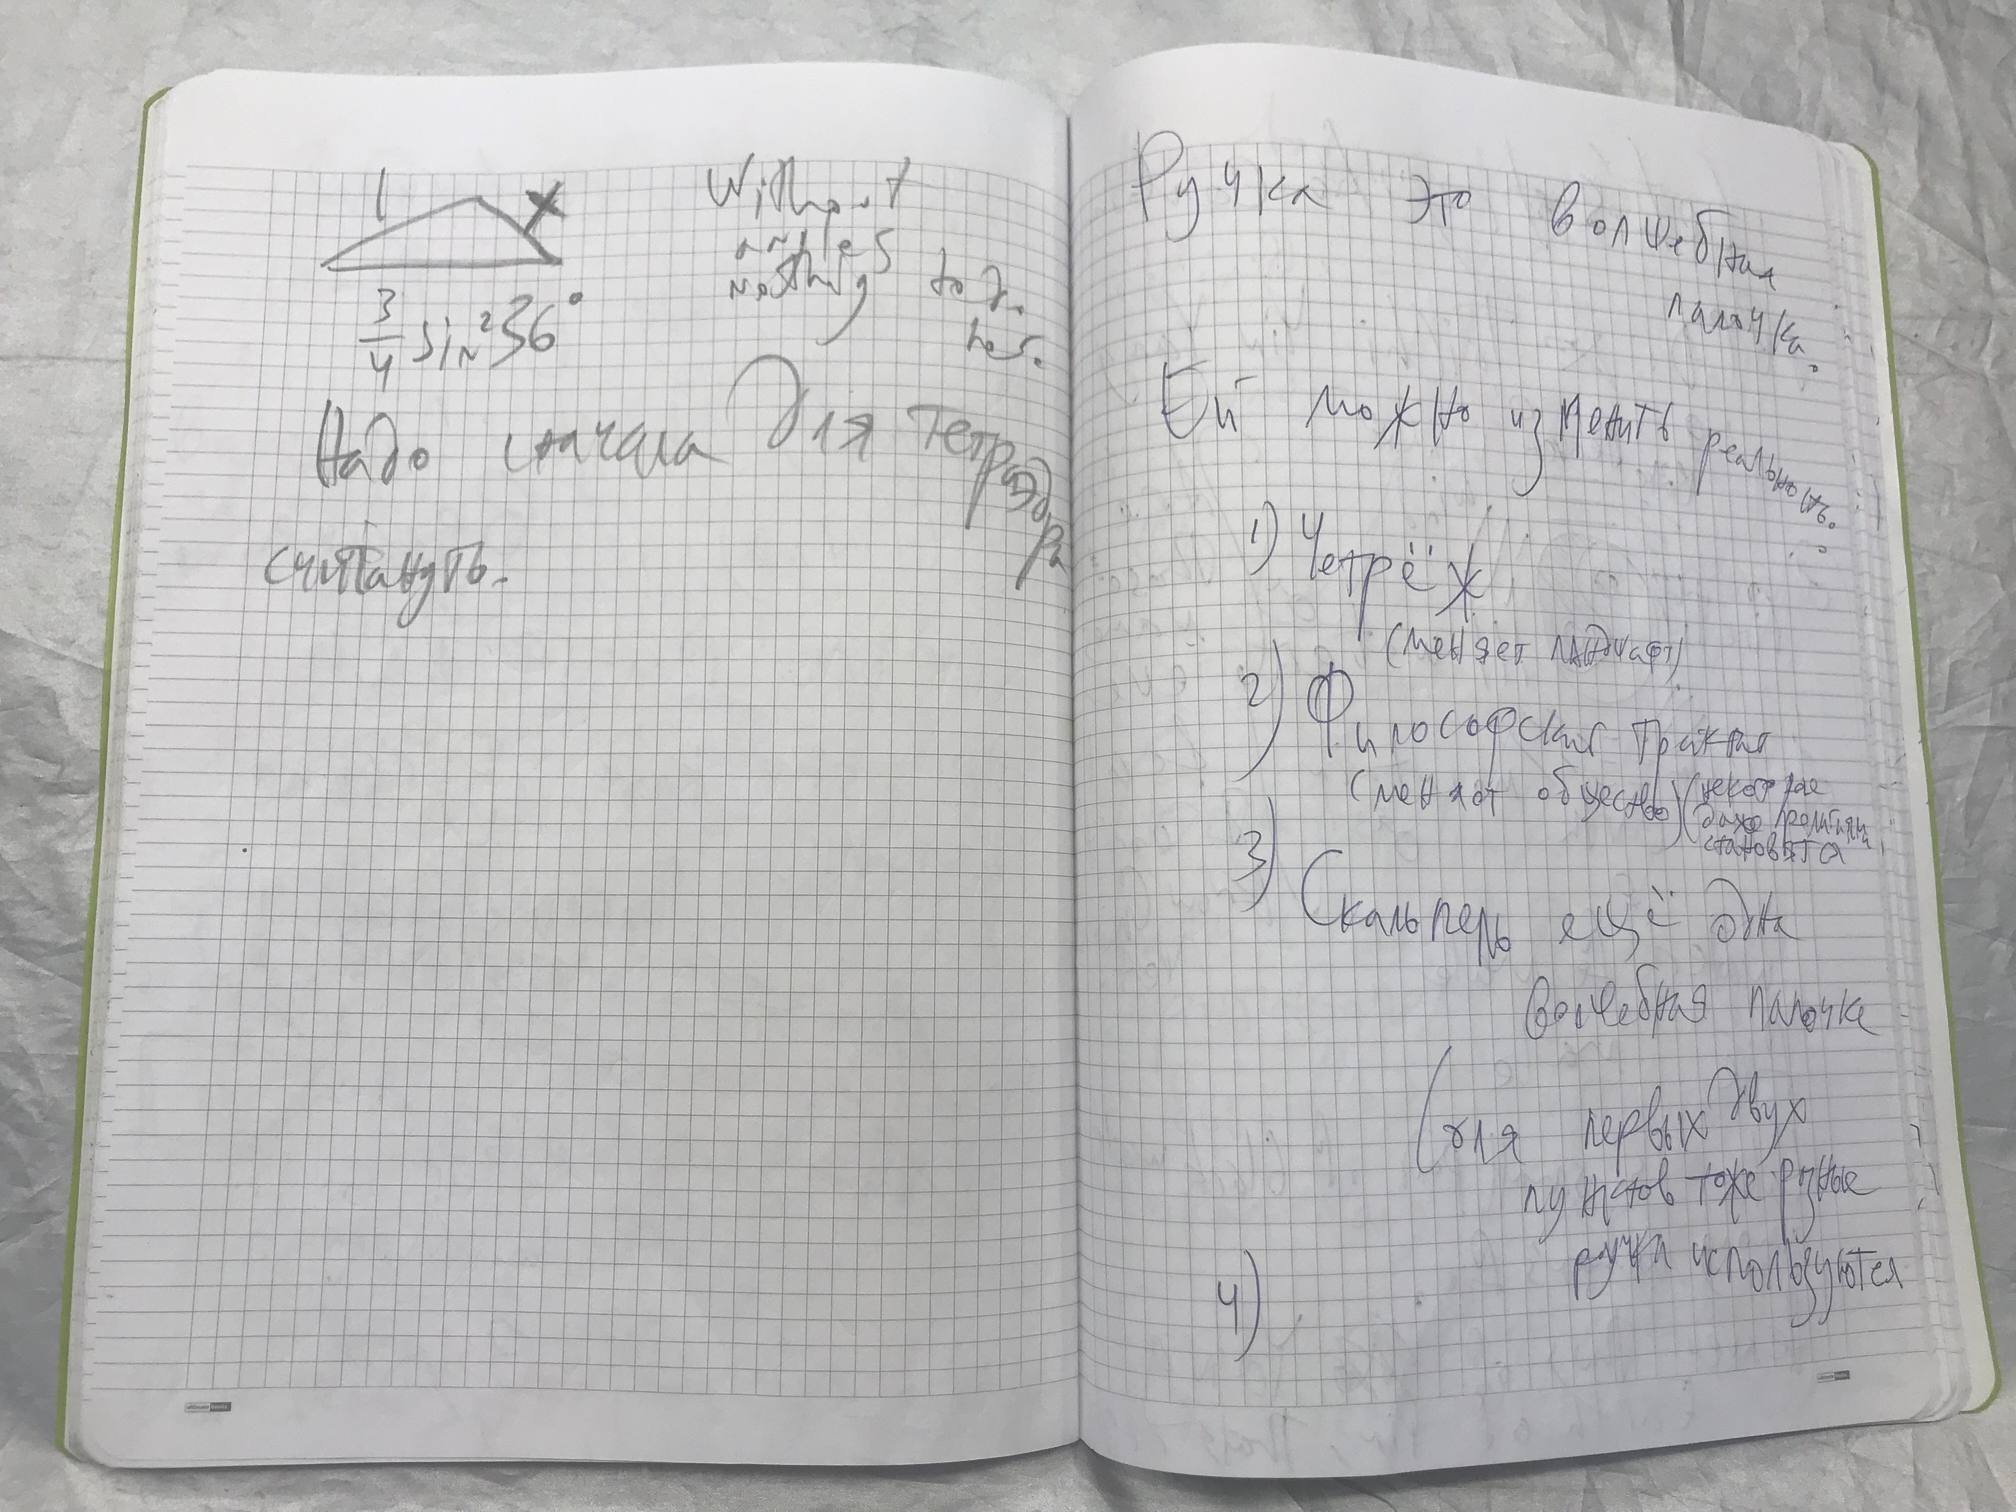 1 x
3/4 sin²36°
Without
angles
nothing to do
Надо сначала для тетраэдра
считануть.
Ручка это волшебная
палочка.
Ей можно изменить реальность.
1) Чертёж
(меняет ландшафт)
2) Философский трактат
(меняют общество) (некоторые
даже религиями
становятся
3) Скальпель ещё одна
волшебная палочка
(для первых двух
пунктов тоже разные
ручки используются
4)